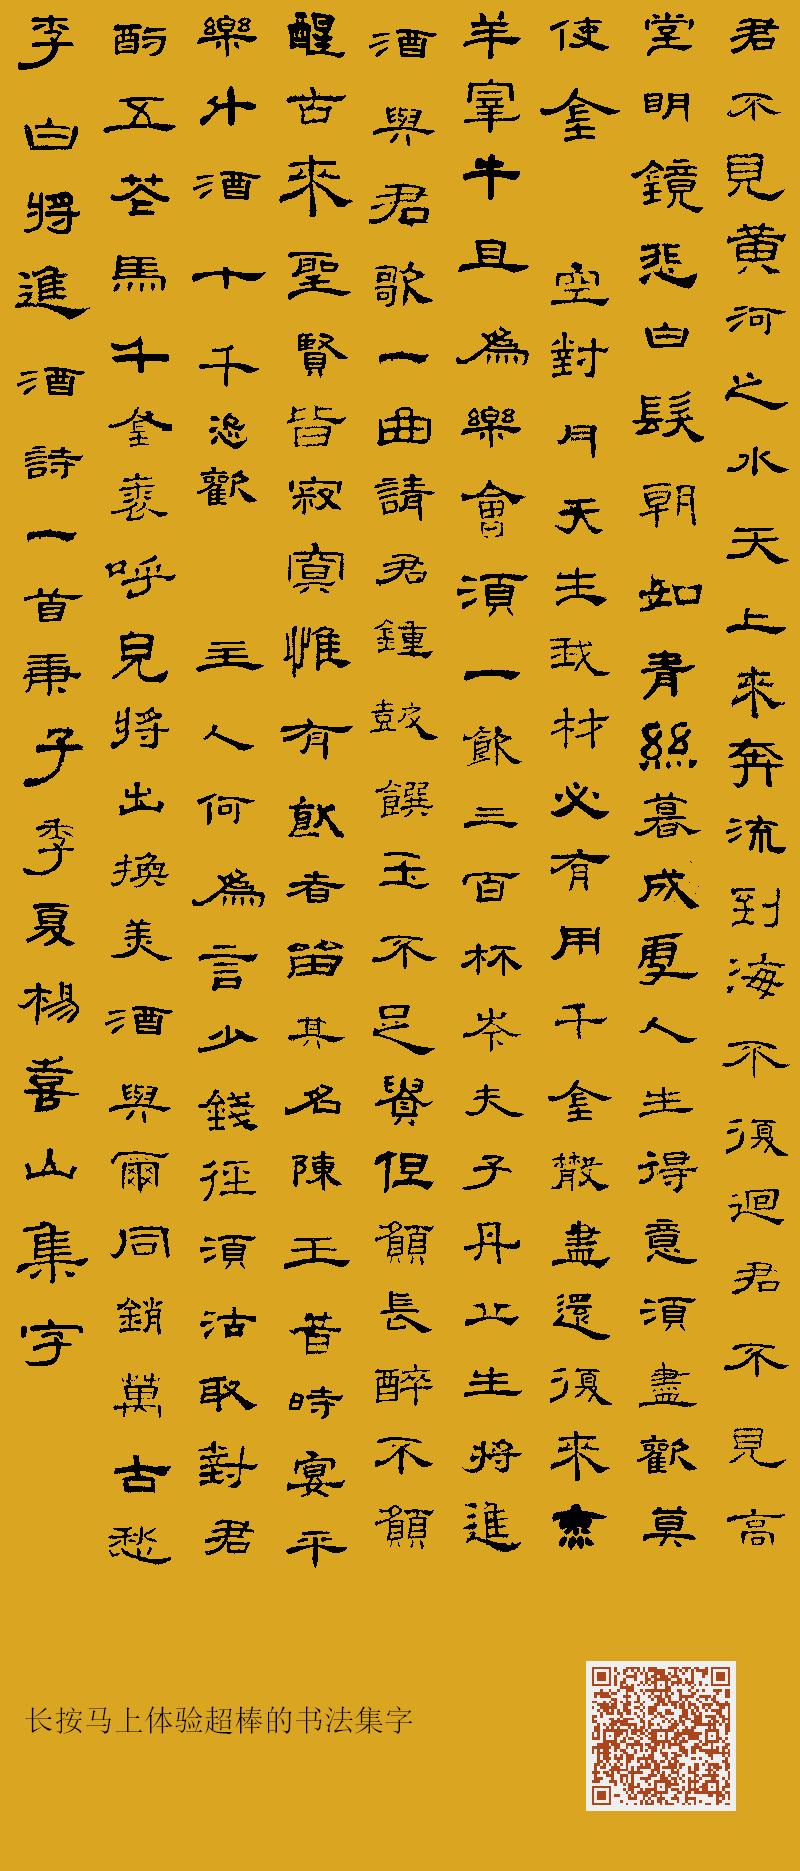 君不見黃河之水天上來奔流到海不復迴君不見高
堂明鏡悲白髮朝如青絲暮成更人生得意須盡歡莫
使金 空對月天生我材必有用千金散盡還復來烹
羊宰牛且為樂會須一飲三百杯岑夫子丹丘生將進
酒與君歌一曲請君鍾鼓饌玉不足貴但願長醉不願
醒古來聖賢皆寂寞惟有飲者留其名陳王昔時宴平
樂斗酒十千恣歡 主人何為言少錢徑須沽取對君
酌五花馬千金裘呼兒將出換美酒與爾同銷萬古愁
李白將進酒詩一首庚子季夏楊喜山集字
长按马上体验超棒的书法集字